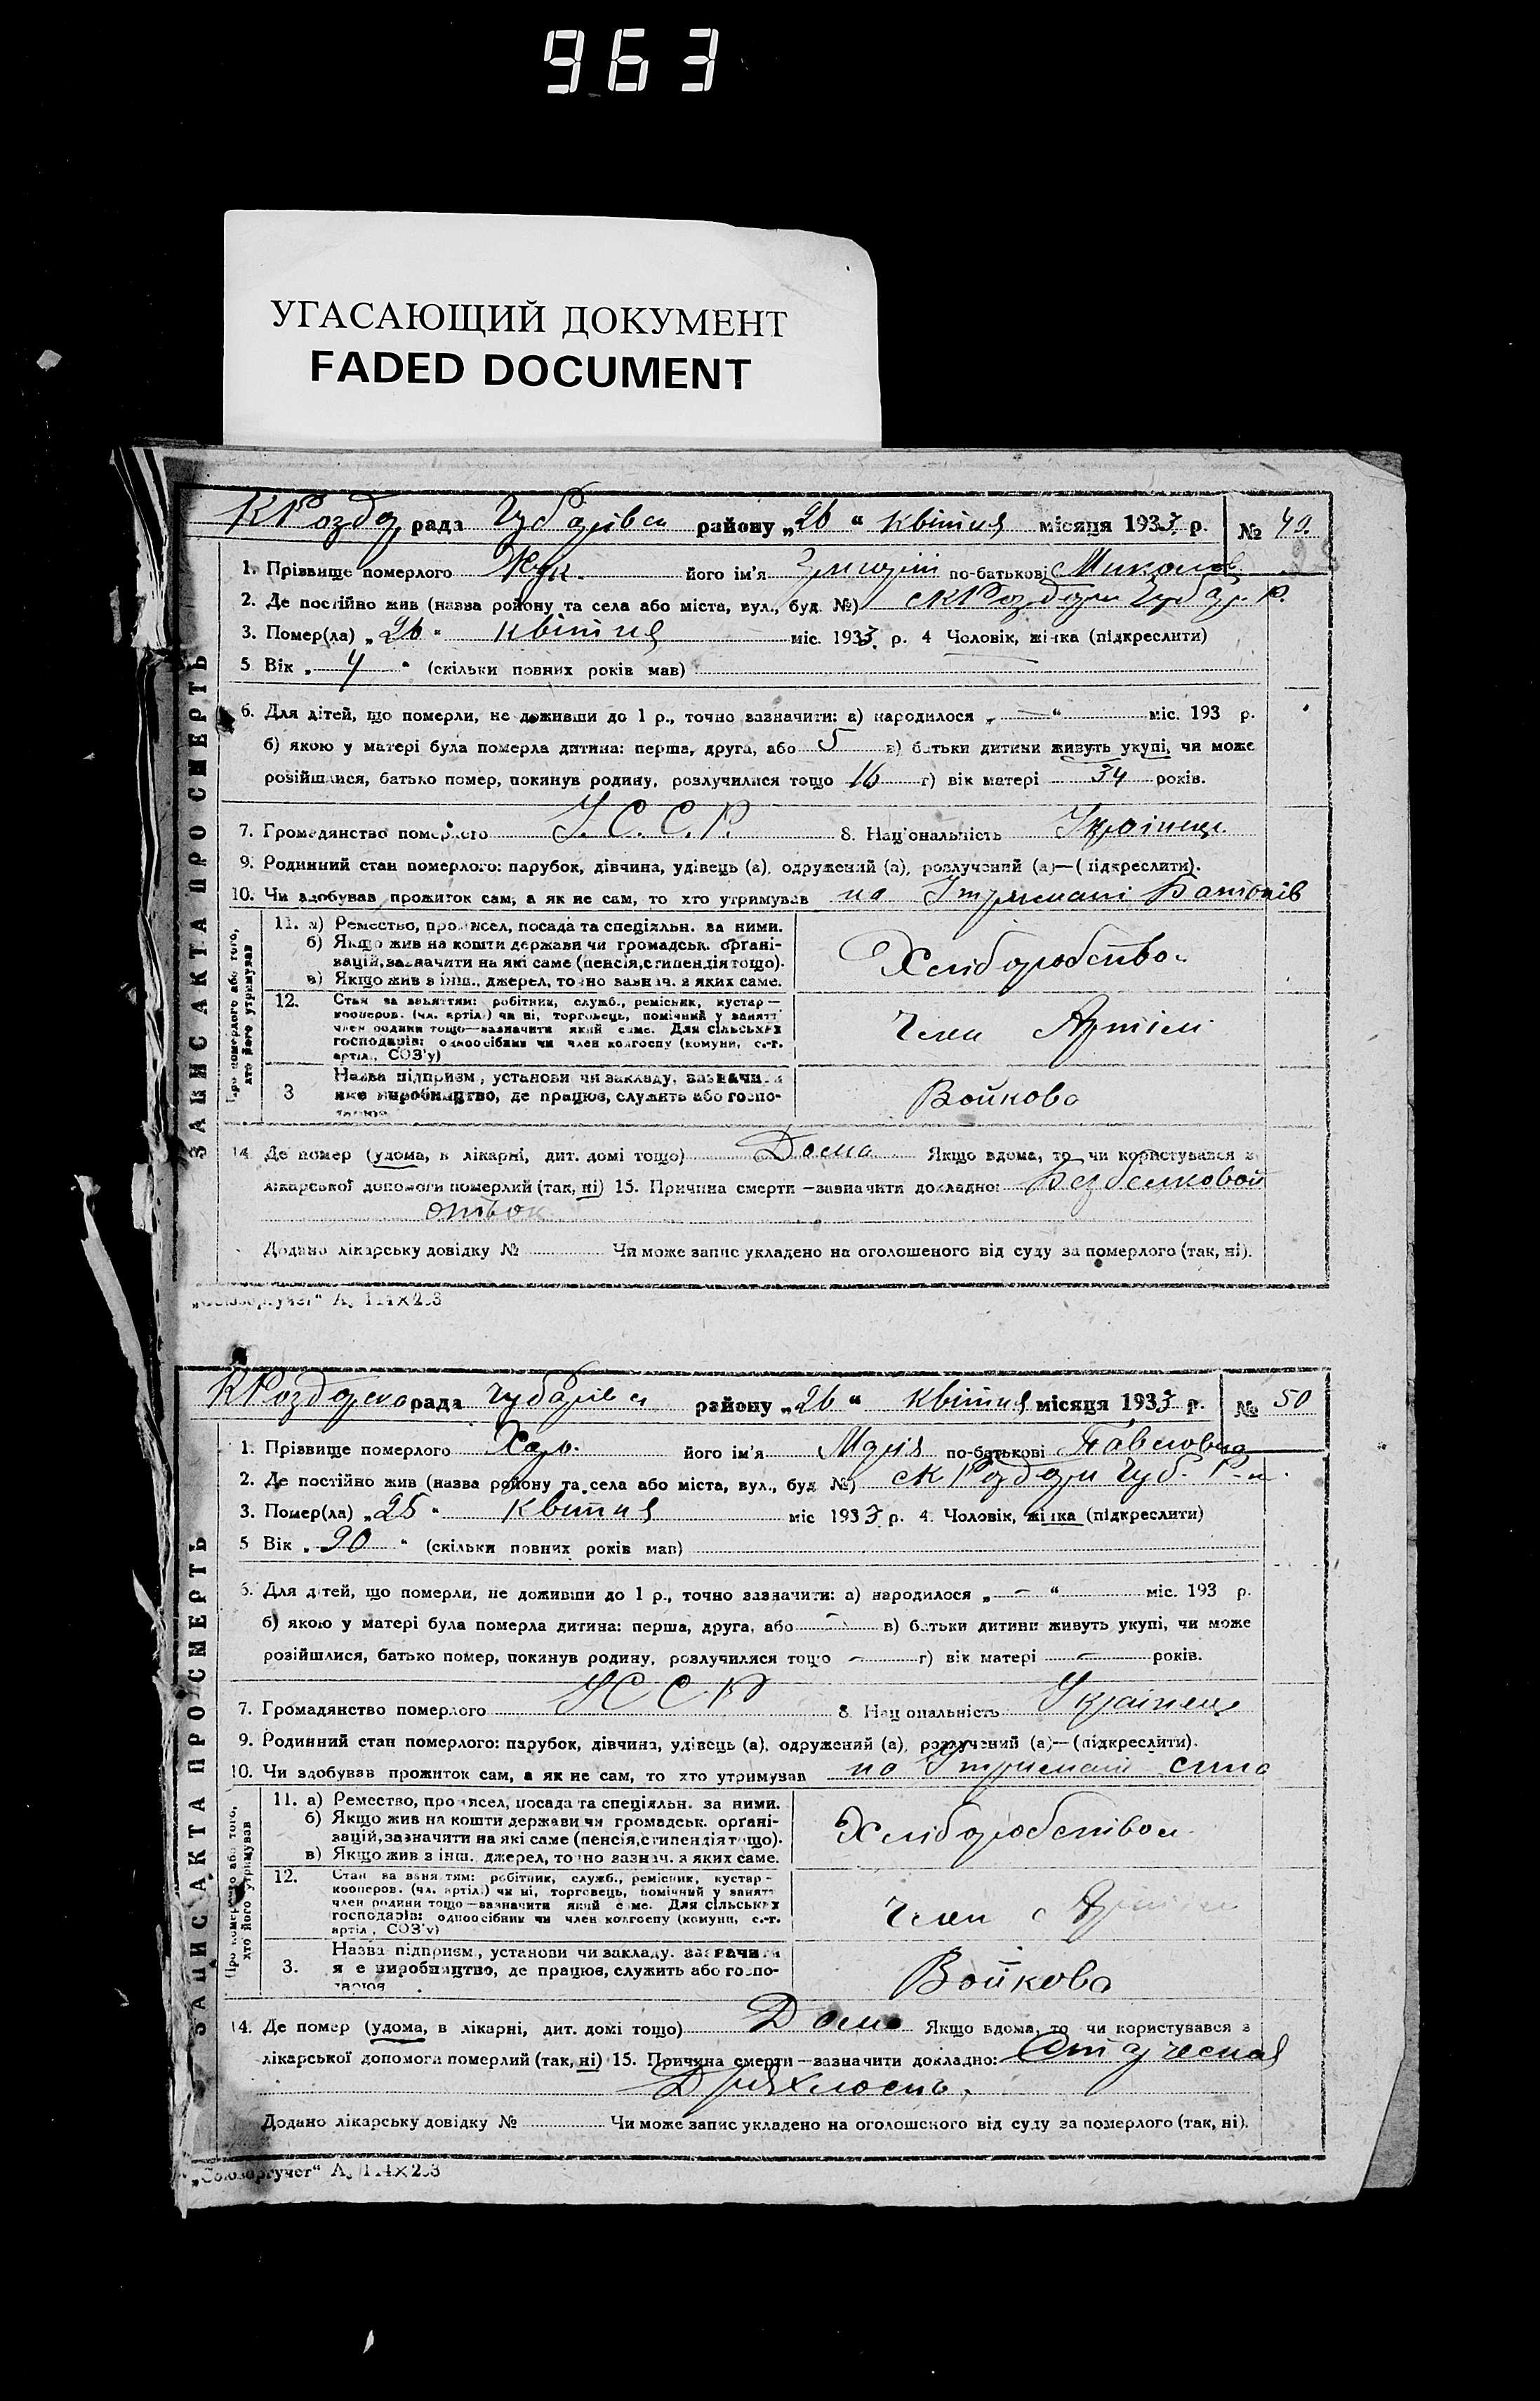 963
УГАСАЮЩИЙ ДОКУМЕНТ
FADED DOCUMENT
рада районy „26“ квітня місяця 1933 р. №
1. Прізвище померлого Жук. його ім'я Григорій по-батькові Миколов
2. Де постійно жив (назва району та села або міста, вул., буд. №)
3. Помер(ла) „26“ квітня міс. 1933 р. 4 Чоловік, жінка (підкреслити)
5 Вік „ 4 “ (скільки повних років мав)
6. Для дітей, що померли, не доживши до 1 р., точно зазначити: а) народилося „—“ міс. 193 р.
б) якою у матері була померла дитина: перша, друга, або 5 в) батьки дитини живуть укупі, чи може
розійшлися, батько помер, покинув родину, розлучилися тощо г) вік матері 34 років.
7. Громадянство померлого У.С.С.Р. 8. Національність Українец
9. Родинний стан померлого: парубок, дівчина, удівець (а), одружений (а), розлучений (а)—(підкреслити).
10. Чи здобував прожиток сам, а як не сам, то хто утримував на Утримані Батьків
ЗАПИС АКТА ПРО СМЕРТЬ
Про померлого або того,
хто його утримував
11. а) Ремество, промисел, посада та спеціяльн. за ними.
б) Якщо жив на кошти держави чи громадськ. орґані-
зацій, зазначити на які саме (пенсія, стипендія тощо).
в) Якщо жив з інш. джерел, точно зазнач. з яких саме.
Хліборобством
12. Стан за заняттям: робітник, служб., ремісник, кустар—
кооперов. (чл. артілі) чи ні, торговець, помічний у занятт
член родини тощо—зазначити який саме. Для сільських
господарів: одноосібник чи член колгоспу (комуни, с.-г.
артіл., СОЗ'у)
Член Артілі
3 Назва підприєм., установи чи закладу, зазначити
яке виробництво, де працює, служить або госпо-
дарює
Войкова
14. Де помер (удома, в лікарні, дит. домі тощо) Дома Якщо вдома, то чи користувався з
лікарської допомоги померлий (так, ні) 15. Причина смерти—зазначити докладно: Безбелковой
отьок
Додано лікарську довідку № Чи може запис укладено на оголошеного від суду за померлого (так, ні).
„Союзоргучет“ А
рада районy „26“ квітня місяця 1933 р. № 50
1. Прізвище померлого його ім'я Марія по-батькові Павловна
2. Де постійно жив (назва району та села або міста, вул., буд. №)
3. Помер(ла) „25“ квітня міс 1933 р. 4. Чоловік, жінка (підкреслити)
5 Вік „ 90 “ (скільки повних років мав)
6. Для дітей, що померли, не доживши до 1 р., точно зазначити: а) народилося „—“ міс. 193 р.
б) якою у матері була померла дитина: перша, друга, або — в) батьки дитини живуть укупі, чи може
розійшлися, батько помер, покинув родину, розлучилися тощо — г) вік матері — років.
7. Громадянство померлого УССР 8. Національність Українец
9. Родинний стан померлого: парубок, дівчина, удівець (а), одружений (а), розлучений (а)—(підкреслити).
10. Чи здобував прожиток сам, а як не сам, то хто утримував на Утримані сина
ЗАПИС АКТА ПРО СМЕРТЬ
Про померлого або того,
хто його утримував
11. а) Ремество, промисел, посада та спеціяльн. за ними.
б) Якщо жив на кошти держави чи громадськ. орґані-
зацій, зазначити на які саме (пенсія, стипендія тощо).
в) Якщо жив з інш. джерел, точно зазнач. з яких саме.
Хліборобством
12. Стан за заняттям: робітник, служб., ремісник, кустар-
кооперов. (чл. артілі) чи ні, торговець, помічний у занятт
член родини тощо—зазначити який саме. Для сільських
господарів: одноосібник чи член колгоспу (комуни, с.-г.
артіл., СОЗ'у)
Член Артілі
3. Назва підприєм., установи чи закладу, зазначити
яке виробництво, де працює, служить або госпо-
дарює
Войкова
14. Де помер (удома, в лікарні, дит. домі тощо) Дома Якщо вдома, то чи користувався з
лікарської допомоги померлий (так, ні) 15. Причина смерти—зазначити докладно: Старческая
Дряхлость.
Додано лікарську довідку № Чи може запис укладено на оголошеного від суду за померлого (так, ні).
„Союзоргучет“ А